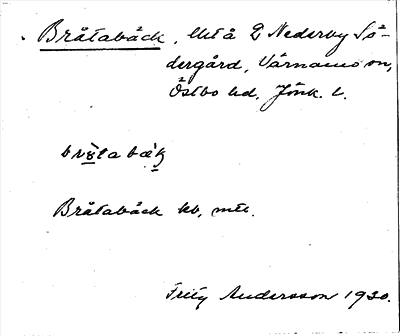 Bråtabäck, lht å 2 Nederby Sö-
dergård, Värnamo sn,
Östbo hd, Jönk. l.
Bråtabäck kb, mtl.
Fritz Andersson 1930.